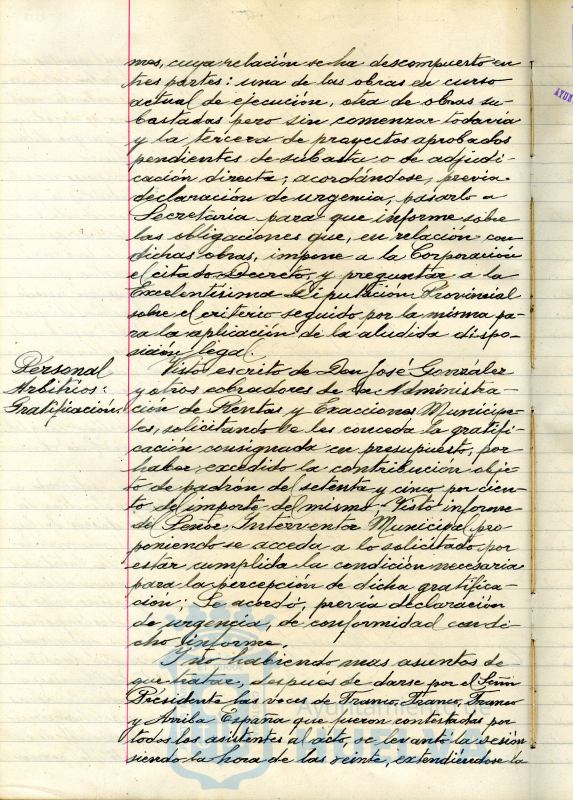 mos, cuya relación se ha descompuesto en
tres partes: una de las obras en curso
actual de ejecución, otra de obras su-
bastadas pero sin comenzar todavía
y la tercera de proyectos aprobados
pendientes de subasta o de adjudi-
cación directa; acordándose, previa
declaración de urgencia, pasarlo a
Secretaría para que informe sobre
las obligaciones que, en relación con
dichas obras, impone a la Corporación
el citado Decreto, y preguntar a la
Excelentísima Diputación Provincial
sobre el criterio seguido por la misma pa-
ra la aplicación de la aludida dispo-
sición legal.
Personal
Arbitrios:
Gratificación
Visto escrito de Don José González
y otros cobradores de la Administra-
ción de Rentas y Exacciones Municipa-
les, solicitando se les conceda la gratifi-
cación consignada en presupuesto, por
haber excedido la contribución obje-
to de padrón del setenta y cinco por cien-
to del importe del mismo. Visto informe
del Señor Interventor Municipal pro-
poniendo se acceda a lo solicitado, por
estar cumplida la condición necesaria
para la percepción de dicha gratifica-
ción; Se acordó, previa declaración
de urgencia, de conformidad con di-
cho informe.
Y no habiendo mas asuntos de
que tratar, después de darse por el Señor
Presidente las voces de Franco, Franco, Franco
y Arriba España que fueron contestadas por
todos los asistentes al acto, se levantó la sesión
siendo la hora de las veinte, extendiéndose la
Ayuntamiento de
HUELVA
AYUN